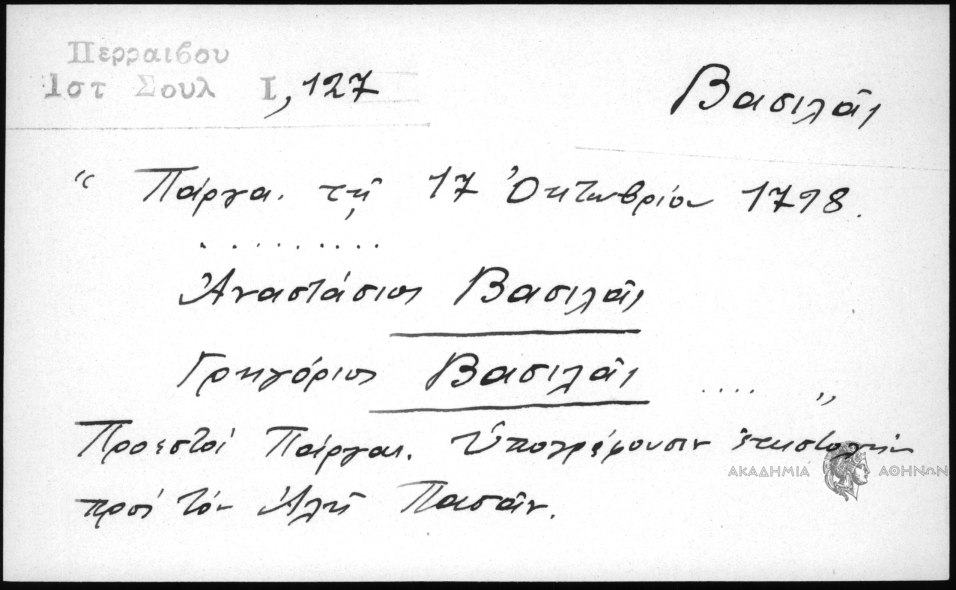 Περραιβου
Ιστ Σουλ I, 127
Βασιλᾶς
“ Πάργα. τῇ 17 Ὀκτωβρίου 1798.
. . . . . . . . .
Ἀναστάσιος Βασιλᾶς
Γρηγόριος Βασιλᾶς .... „
Προεστοί Πάργας. Ὑπογράφουσιν ἐπιστολήν
πρός τόν Ἀλῆ Πασᾶν.
ΑΚΑΔΗΜΙΑ ΑΘΗΝΩΝ